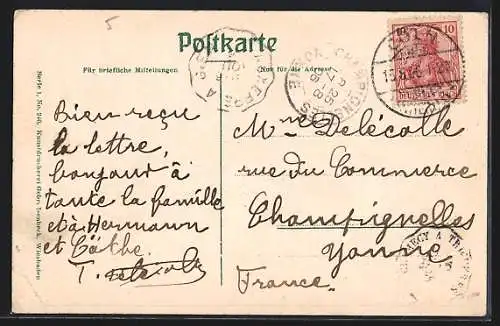 5
Postkarte
Für briefliche Mitteilungen.
Nur für die Adresse.
10
Serie I, No. 205, Kunstdruckerei Gebr. Dembeck, Wiesbaden
Bien reçu
la lettre,
bonjour à
toute la famille
et à Hermann
et Cäthe.
Mme Delécolle
rue du Commerce
Champignelles
Yonne
France.